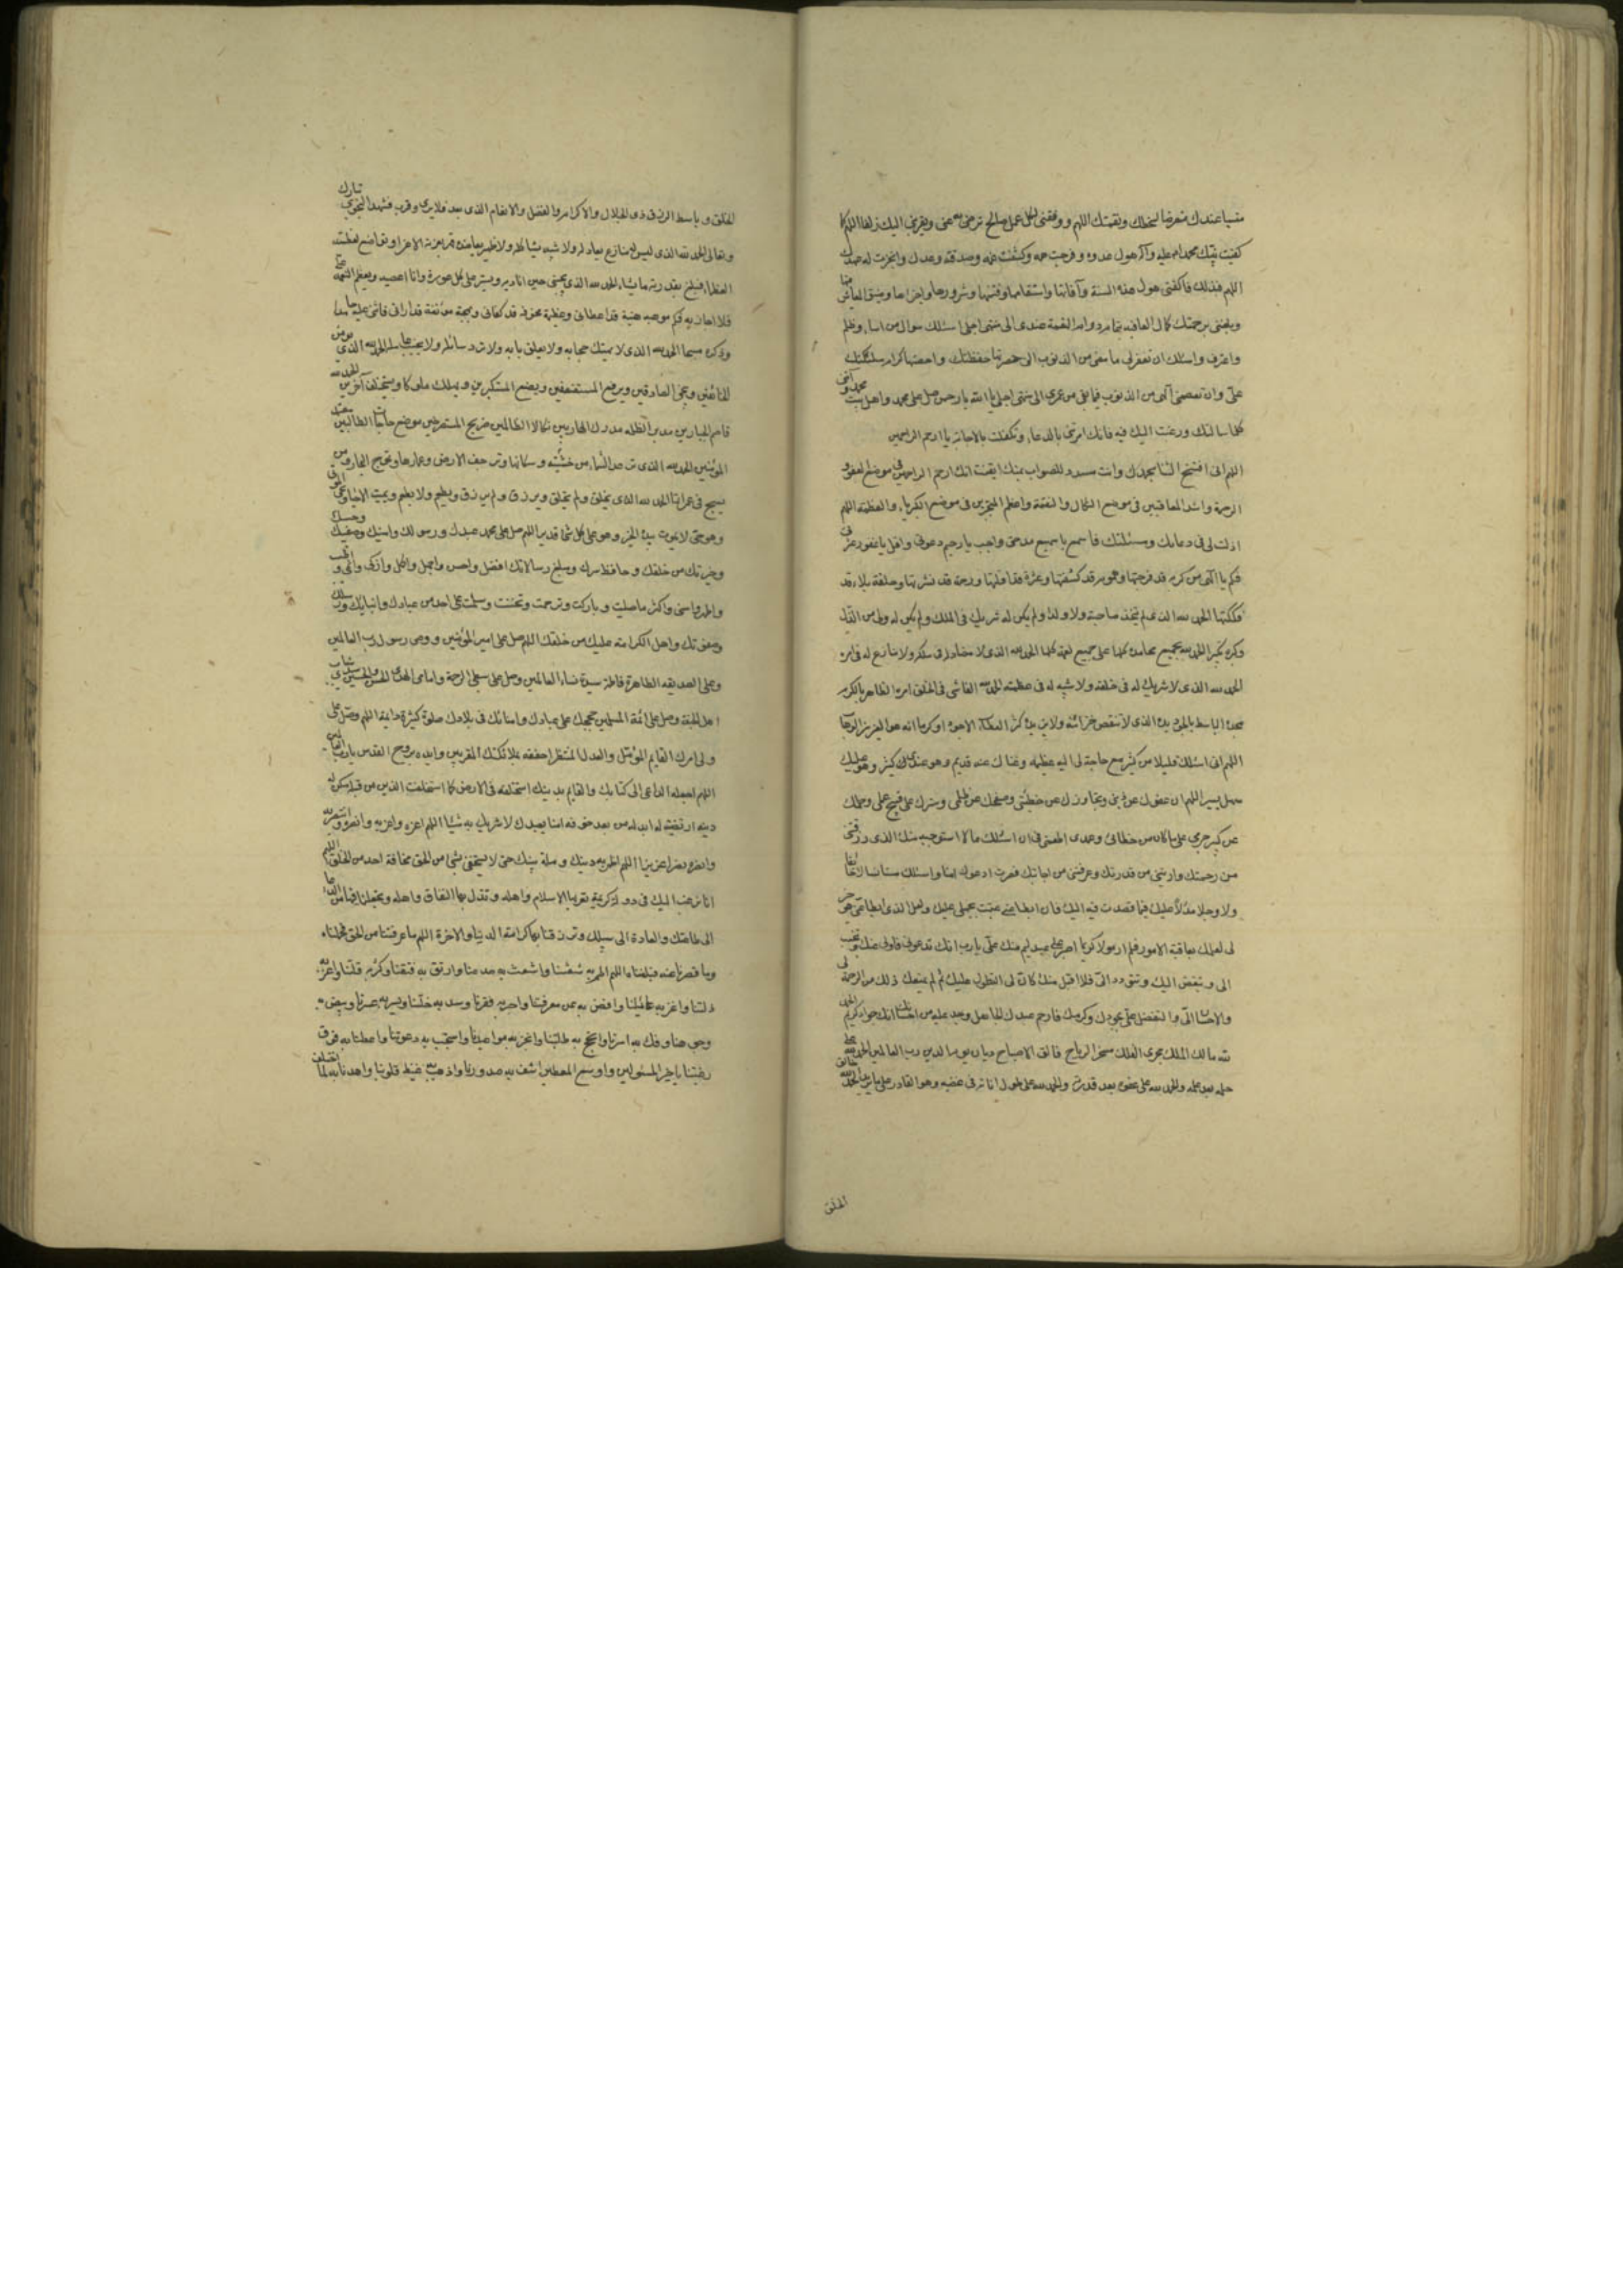 منسيا عندك متعرضا لسخطك ونقمتك اللهم ووفقنى لكل عمل صالح ترضى به عنى ويقربنى اليك زلفا اللهم كما
كفيت نبيك محمدا عليه وآله هول عدوه وفرجت همه وكشفت غمه وصدقته وعدك وانجزت له عهدك
اللهم فبذلك فاكفنى هول هذه السنة وآفاتها واسقامها وفتنتها وشرورها واحزانها وضيق المعاش فيها
وبلغنى برحمتك كمال العافيه بتمام دوام النعمة عندى الى منتهى اجلى اسئلك سوال من اساء وظلم
واعترف واسئلك ان تغفر لى ما مضى من الذنوب التى حصرتها حفظتك واحصتها كرام ملئكتك
علىّ وان تعصمنى آلهى من الذنوب فيما بقى من عمرى الى منتهى اجلى يا الله يا رحمن صل على محمد واهل بيت محمد وآتنى
كلما سالتك ورغبت اليك فيه فانك امرتنى بالدعاء وتكفلت بالاجابة يا ارحم الراحمين
اللهم انى افتتح الثنا بحمدك وانت مسدد للصواب بمنك ايقنت انك ارحم الراحمين فى موضع العفو و
الرحمة واشد المعاقبين فى موضع النكال والنقمة واعظم المتجبرين فى موضع الكبرياء والعظمة اللهم
اذنت لى فى دعائك ومسئلتك فاسمع يا سميع مدحتى واجب يا رحيم دعوتى واقل يا غفور عثرتى
فكم يا آلهى من كربه قد فرجتها وهموم قد كشفتها وعثرة قد اقلتها ورحمه قد نشرتها وحلقة بلاء قد
فككتها الحمد لله الذى لم يتخذ صاحبة ولا ولدا ولم يكن له شريك فى الملك ولم يكن له ولى من الذل
وكبره تكبيرا الحمد لله بجميع محامده كلها على جميع نعمه كلها الحمد لله الذى لا مضاد له فى ملكه ولا منازع له فى امره
الحمد لله الذى لا شريك له فى خلقه ولا شبيه له فى عظمته الحمد لله الفاشى فى الخلق امره الظاهر بالكرم
مجده الباسط بالجود يده الذى لا تنقص خزائنه ولا يزيده كثرة العطاء الا جودا وكرما انه هو العزيز الوهاب
اللهم انى اسئلك قليلا من كثير مع حاجة بى اليه عظيمه وغناك عنه قديم وهو عندى كثير وهو عليك
سهل يسير اللهم ان عفوك عن ذنبى وتجاوزك عن خطيئتى وصفحك عن ظلمى وسترك على قبيح عملى وحلمك
عن كبير جرمى على ما كان من خطائى وعمدى اطمعنى فى ان اسئلك ما لا استوجبه منك الذى رزقتنى
من رحمتك واريتنى من قدرتك وعرفتنى من اجابتك فصرت ادعوك امنا واسئلك مستانسا لا خائفا
ولا وجلا مدلا عليك فيما قصدت فيه اليك فان ابطا عنى عتبت بجهلى عليك ولعل الذى ابطا عنى هو خير
لى لعلمك بعاقبة الامور فلم ار مولا كريما اصبر على عبد لئيم منك علىّ يا رب انك تدعونى فاولى عنك وتتحبب
الى وتبغض اليك وتتودد الىّ فلا اقبل منك كان لى التطول عليك ثم لم يمنعك ذلك من الرحمة لى
والاحسان الىّ والتفضل علىّ بجودك وكرمك فارحم عبدك الجاهل وجد عليه من احسانك انك جواد كريم الحمد
لله مالك الملك مجرى الفلك مسخر الرياح فالق الاصباح ديان يوم الدين رب العالمين الحمد لله على
حلمه بعد علمه والحمد لله على عفوه بعد قدرته والحمد لله على طول اناته فى غضبه وهو القادر على ما يريد الحمد لله خالق
الخلق
الخلق وباسط الرزق ذى الجلال والاكرام والفضل والانعام الذى بعد فلا يرى وقرب فشهد النجوى تبارك
وتعالى الحمد لله الذى ليس له منازع يعادله ولا شبيه يشاكله ولا ظهير يعاضده قهر بعزته الاعزا وتواضع لعظمته
العظما فبلغ بقدرته ما يشاء الحمد لله الذى يجيبنى حين اناديه ويستر على كل عورة وانا اعصيه ويعظم النعمة على
فلا اجازيه فكم موهبه هنيئة قد اعطانى وعظيمة مخوفه قد كفانى وبهجة مونقة قد ارانى فاثنى عليه حامدا
وذكره مسبحا الحمد لله الذى لا يهتك حجابه ولا يغلق بابه ولا يرد سائله ولا يخيب امله الحمد لله الذى يومن
الخائفين وينجى الصادقين ويرفع المستضعفين ويضع المستكبرين ويهلك ملوكا ويستخلف آخرين الحمد لله
قاصم الجبارين مدبر الظلمه مدرك الهاربين نكال الظالمين صريخ المستصرخين موضع حاجات الطالبين معتمد
المؤمنين الحمد لله الذى من خشيته ترعد السماء وسكانها وترجف الارض وعمارها وتموج البحار ومن
يسبح فى غمراتها الحمد لله الذى يخلق ولم يخلق ويرزق ولم يرزق ويطعم ولا يطعم ويميت الاحيا ويحيى الموتى
وهو حى لا يموت بيده الخير وهو على كل شئ قدير اللهم صل على محمد عبدك ورسولك وامينك وصفيك وحبيبك
وخيرتك من خلقك وحافظ سرك ومبلغ رسالاتك افضل واحسن واجمل واكمل وازكى وانمى و اطيب
واطهر واسنى واكثر ما صليت وباركت وترحمت وتحننت وسلمت على احد من عبادك وانبيائك ورسلك
وصفوتك واهل الكرامة عليك من خلقك اللهم صل على امير المؤمنين ووصى رسول رب العالمين
وعلى الصديقه الطاهرة فاطمة سيدة نساء العالمين وصل على سبطى الرحمة وامامى الهدى الحسن والحسين سيدى شباب
اهل الجنة وصل على ائمة المسلمين حججك على عبادك وامنائك فى بلادك صلوة كثيرة دايمة اللهم وصل على
ولى امرك القايم المؤمل والعدل المنتظر احففه بملائكتك المقربين وايده بروح القدس يا رب العالمين
اللهم اجعله الداعى الى كتابك والقايم بدينك استخلفه فى الارض كما استخلفت الذين من قبله مكن له
دينه ارتضيته له ابدله من بعد خوفه امنا يعبدك لا شريك به شيئا اللهم اعزه واعزز به وانصره وانتصر به
وانصره نصرا عزيزا اللهم اظهر به دينك وملة نبيك حتى لا يستخفى بشئ من الحق مخافة احد من الخلق اللهم
انا نرغب اليك فى دولة كريمة تعز بها الاسلام واهله وتذل بها النفاق واهله وتجعلنا فيها من الدعاة
الى طاعتك والقادة الى سبيلك وترزقنا بها كرامة الدنيا والاخرة اللهم ما عرفتنا من الحق فحملناه
وما قصرنا عنه فبلغناه اللهم المم به شعثنا واشعب به صدعنا وارتق به فتقنا وكثر به قلتنا واعز به
ذلتنا واغن به عائلنا واقض به عن مغرمنا واجبر به فقرنا وسد به خلتنا ويسر به عسرنا وبيض به
وجوهنا وفك به اسرنا وانجح به طلبتنا وانجز به مواعيدنا واستجب به دعوتنا واعطنا به فوق
رغبتنا يا خير المسئولين واوسع المعطين اشف به صدورنا واذهب به غيظ قلوبنا واهدنا به لما اختلف